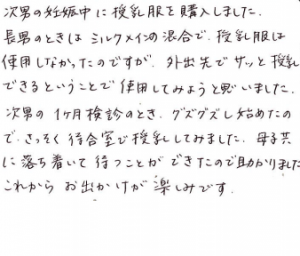 次男の妊娠中に授乳服を購入しました.
長男のときは ミルクメインの混合で, 授乳服は
使用しなかったのですが, 外出先で サッと授乳
できるということで使用してみようと思いました.
次男の 1ヶ月検診のとき, グズグズし始めたの
で, さっそく 待合室で授乳してみました. 母子共
に落ち着いて 待つことが できたので助かりました
これから お出かけが 楽しみです.